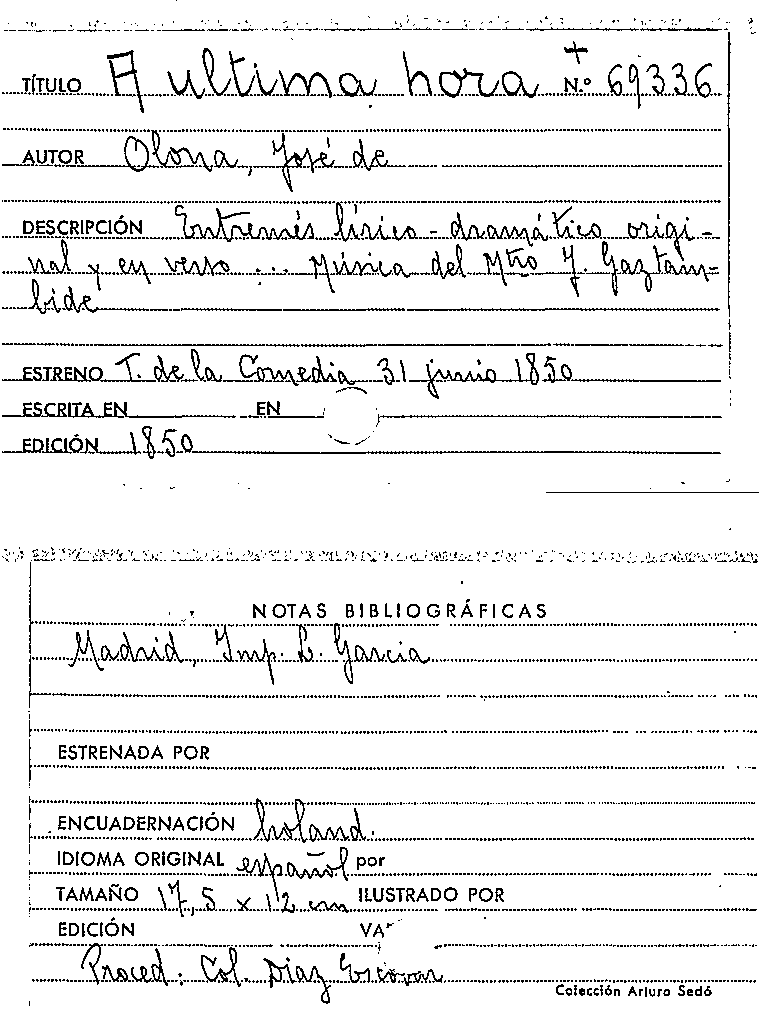 TÍTULO A ultima hora + N.º 69336
AUTOR Olona, José de
DESCRIPCIÓN Entremés lírico-dramático origi-
nal y en verso ... Música del Mtro J. Gaztam-
bide
ESTRENO T. de la Comedia 31 junio 1850
ESCRITA EN EN
EDICIÓN 1850
NOTAS BIBLIOGRÁFICAS
Madrid, Imp. L. Garcia
ESTRENADA POR
ENCUADERNACIÓN holand.
IDIOMA ORIGINAL español por
TAMAÑO 17,5 x 12 cm ILUSTRADO POR
EDICIÓN VA
Proced: Col. Diaz Escovar
Colección Arturo Sedó